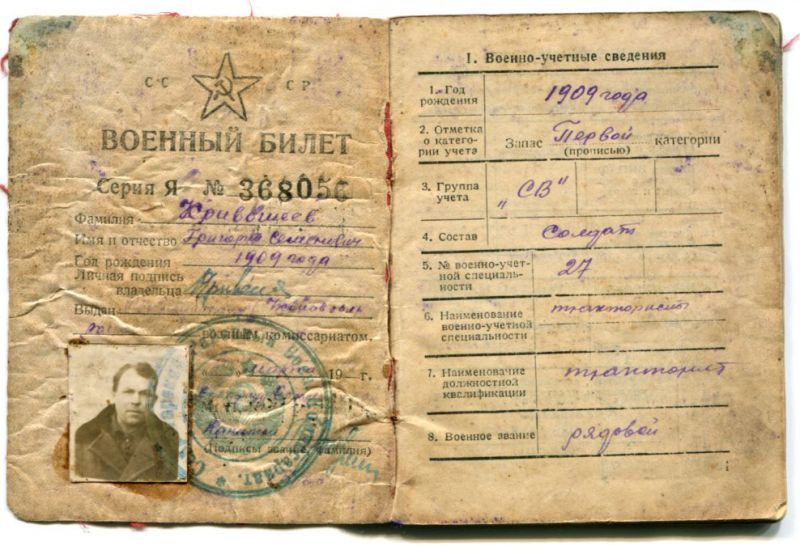 СС СР
ВОЕННЫЙ БИЛЕТ
Серия Я № 368056
Фамилия Кривошеев
Имя и отчество Григорий Семенович
Год рождения 1909 года
Личная подпись
владельца
Выдан
военным комиссариатом.
19 г.
(Подпись, звание, фамилия)
I. Военно-учетные сведения
1. Год
рождения
1909 года
2. Отметка
о катего-
рии учета
Запас Первой категории
(прописью)
3. Группа
учета
„СВ"
4. Состав
Солдат
5. № военно-учет-
ной специаль-
ности
27
6. Наименование
военно-учетной
специальности
трактористы
7. Наименование
должностной
квалификации
тракторист
8. Военное звание
рядовой